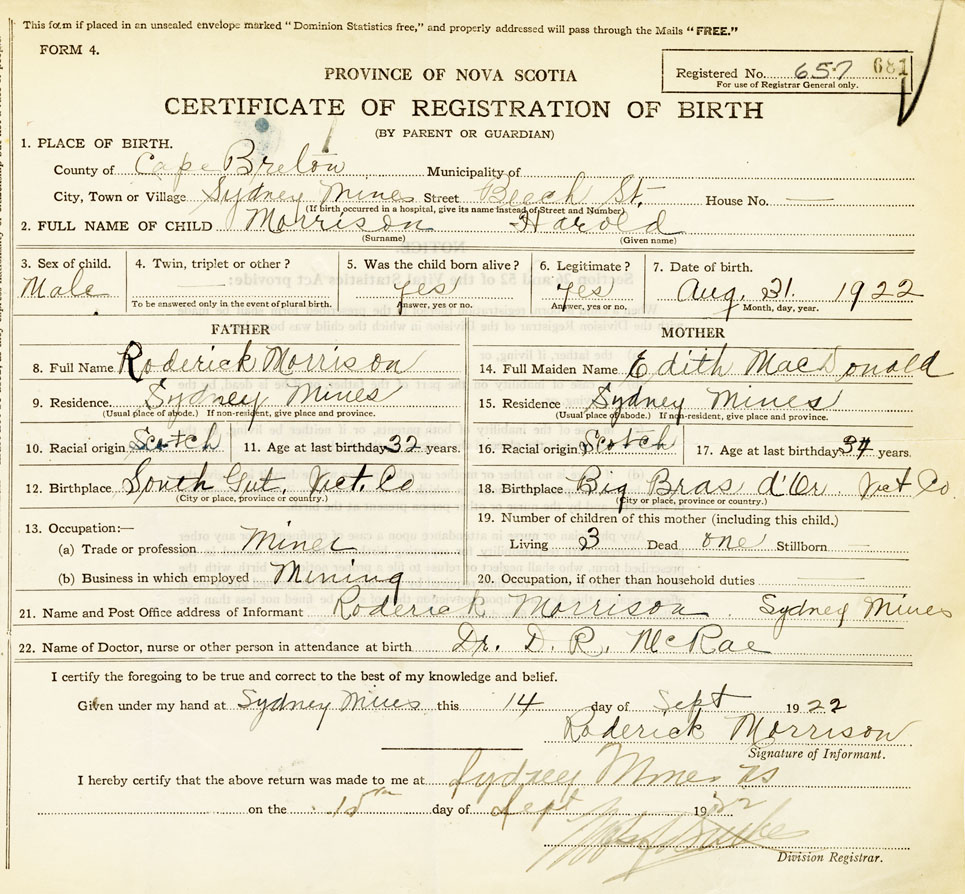 This form if placed in an unsealed envelope marked "Dominion Statistics free," and properly addressed will pass through the Mails "FREE."
FORM 4.
PROVINCE OF NOVA SCOTIA
Registered No. 657 681
For use of Registrar General only.
CERTIFICATE OF REGISTRATION OF BIRTH
(BY PARENT OR GUARDIAN)
1. PLACE OF BIRTH.
County of Cape Breton Municipality of
City, Town or Village Sydney Mines Street Beech St. House No. —
(If birth occurred in a hospital, give its name instead of Street and Number)
2. FULL NAME OF CHILD Morrison Harold
(Surname) (Given name)
3. Sex of child. 4. Twin, triplet or other? 5. Was the child born alive? 6. Legitimate? 7. Date of birth.
Male — yes yes Aug. 31. 1922
To be answered only in the event of plural birth. Answer, yes or no. Answer, yes or no. Month, day, year.
FATHER MOTHER
8. Full Name Roderick Morrison 14. Full Maiden Name Edith MacDonald
9. Residence. Sydney Mines 15. Residence Sydney Mines
(Usual place of abode.) If non-resident, give place and province. (Usual place of abode.) If non-resident, give place and province.
10. Racial origin Scotch 11. Age at last birthday 32 years. 16. Racial origin Scotch 17. Age at last birthday 34 years.
12. Birthplace South Gut, Vict. Co 18. Birthplace Big Bras d'Or Vict Co.
(City or place, province or country.) (City or place, province or country.)
13. Occupation:— 19. Number of children of this mother (including this child.)
(a) Trade or profession Miner Living 3 Dead one Stillborn —
(b) Business in which employed Mining 20. Occupation, if other than household duties —
21. Name and Post Office address of Informant Roderick Morrison. Sydney Mines
22. Name of Doctor, nurse or other person in attendance at birth Dr. D. R. McRae
I certify the foregoing to be true and correct to the best of my knowledge and belief.
Given under my hand at Sydney Mines this 14 day of Sept 1922
Roderick Morrison
Signature of Informant.
I hereby certify that the above return was made to me at Sydney Mines NS
on the day of Sept 1922
Division Registrar.